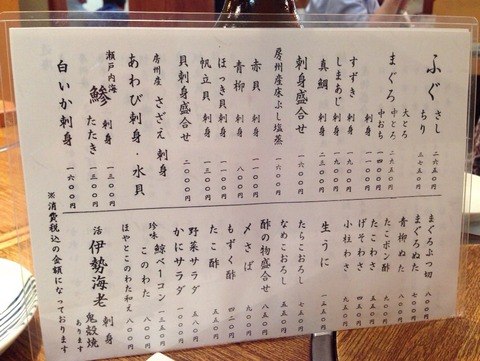 ふぐ さし 二六五〇円
ちり 三七五〇円
まぐろ 大とろ
中とろ 二六五〇円
中おち 一四〇〇円
刺身 一三〇〇円
すずき 刺身 一九〇〇円
しまあじ 刺身 一九〇〇円
真鯛 刺身 二三〇〇円
刺身盛合せ 一六〇〇円
房州産床ぶし塩蒸 一六〇〇円
赤貝 刺身
青柳 刺身 八〇〇円
ほっき貝 刺身 一一〇〇円
帆立貝 刺身 一三〇〇円
貝刺身盛合せ 二〇〇〇円
房州産 さざえ 刺身
あわび刺身・水貝
瀬戸内海 鯵 刺身 一三〇〇円
たたき 一三〇〇円
白いか刺身 一六〇〇円
まぐろぶつ切 八〇〇円
まぐろぬた 八〇〇円
青柳ぬた 七〇〇円
たこポン酢
たこわさ
げそわさ
小柱わさ 九五〇円
生うに 一四五〇円
たらこおろし 七五〇円
なめこおろし 五五〇円
酢の物盛合せ 八五〇円
〆さば 九〇〇円
もずく酢
たこ酢
野菜サラダ
かにサラダ
鯨ベーコン 一五五〇円
珍味 このわた 一八〇〇円
ほやとこのわた和え 八〇〇円
活 伊勢海老 刺身
鬼殻焼
あります
※消費税込の金額になっております